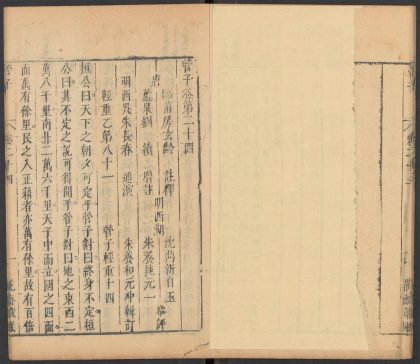 管子卷第二十四
唐 臨菑房玄齡 註釋
蘆泉劉績 增註
明西吳朱長春 通演
明西湖
沈鼎新自玉
朱養純元一
朱養和元冲輯訂
輕重乙第八十一 管子輕重十四
桓公曰天下之朝夕可定乎管子對曰終身不定桓
公曰其不定之說可得聞乎管子對曰地之東西二
萬八千里南北二萬六千里天子中而立國之四面
面萬有餘里民之入正籍者亦萬有餘里故有百倍
管子
卷二十四